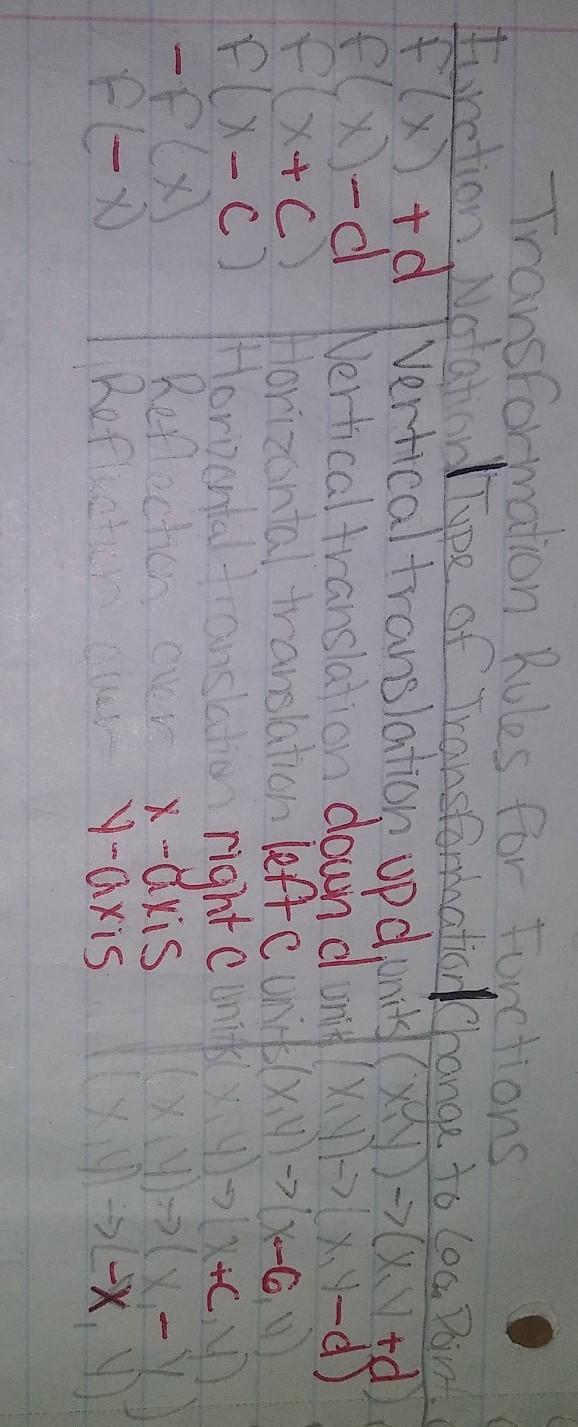 Transformation Rules for Functions
Function Notation | Type of Transformation | Change to Coor. Point
F(x) + d | Vertical translation up d units | (x,y) -> (x,y+d)
F(x) - d | Vertical translation down d unit | (x,y) -> (x,y-d)
F(x + c) | Horizontal translation left c units | (x,y) -> (x-c,y)
F(x - c) | Horizontal translation right c units | (x,y) -> (x+c,y)
-F(x) | Reflection over x-axis | (x,y) -> (x,-y)
F(-x) | Reflection over y-axis | (x,y) -> (-x,y)